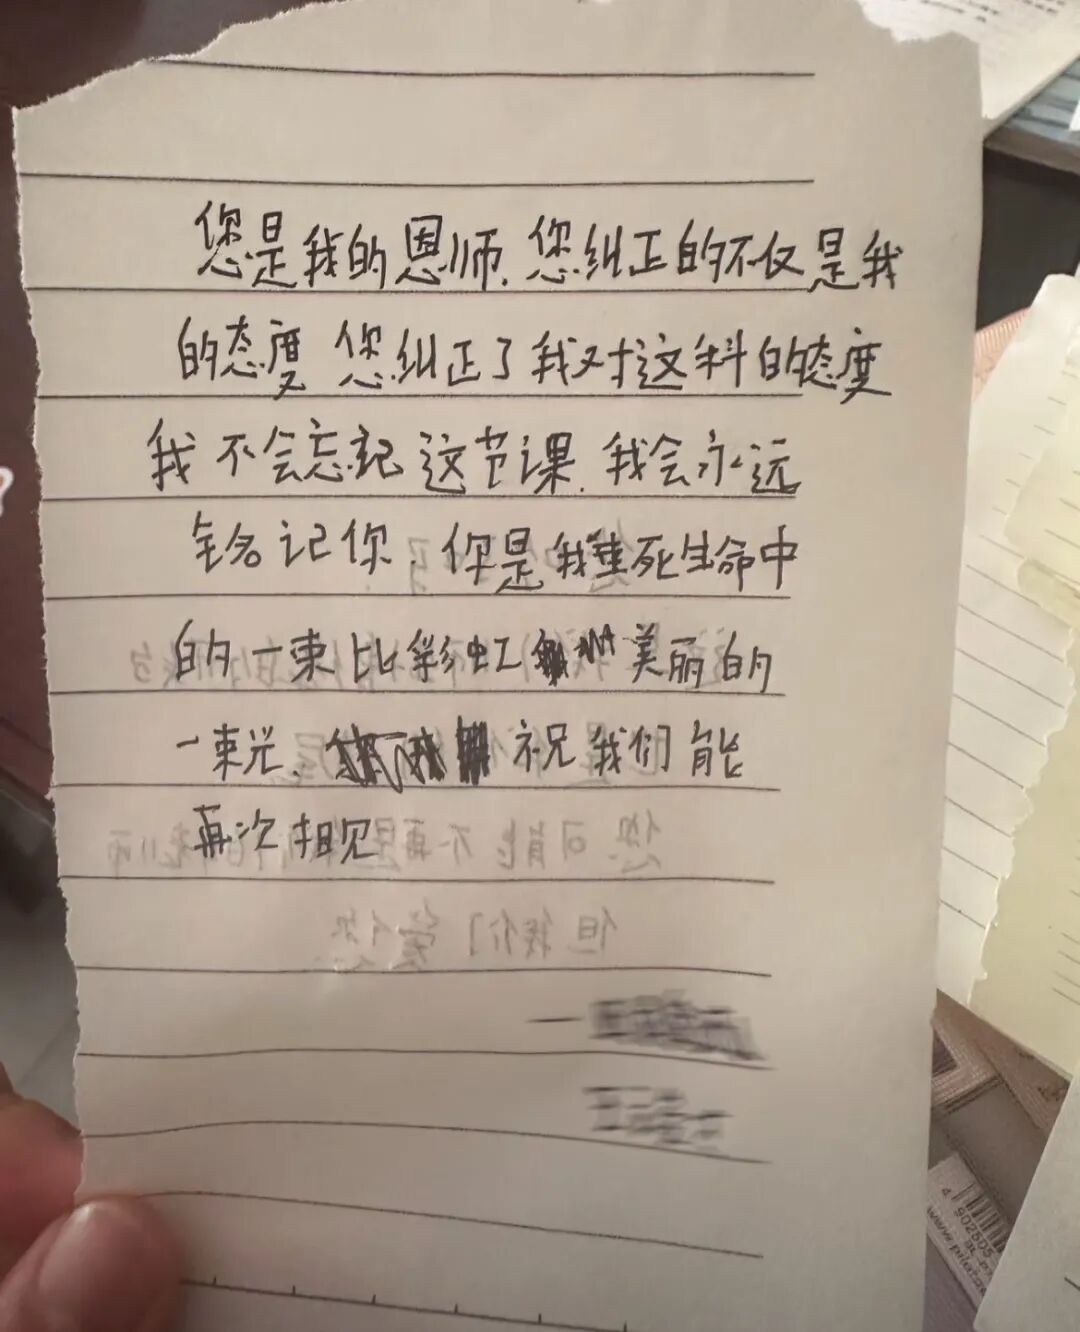 您是我的恩师.您纠正的不仅是我
的态度 您纠正了我对这科的态度
我不会忘记这节课.我会永远
铭记你.你是我垂死生命中
的一束比彩虹美丽的
一束光.祝我们能
再次相见
您可能不再是我们的老师
但我们爱您
4 902505
www.pilot